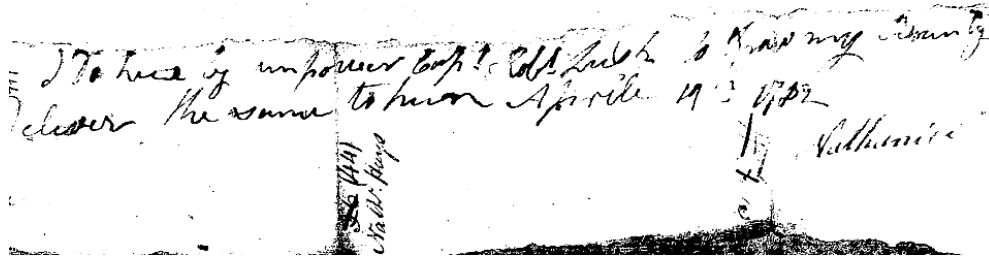 I Do hereby impower Capt. Robt. to Draw my Bounty
Deliver the same to him Aprile 19 1782
Nathaniel
(44)
Nathl. Hays